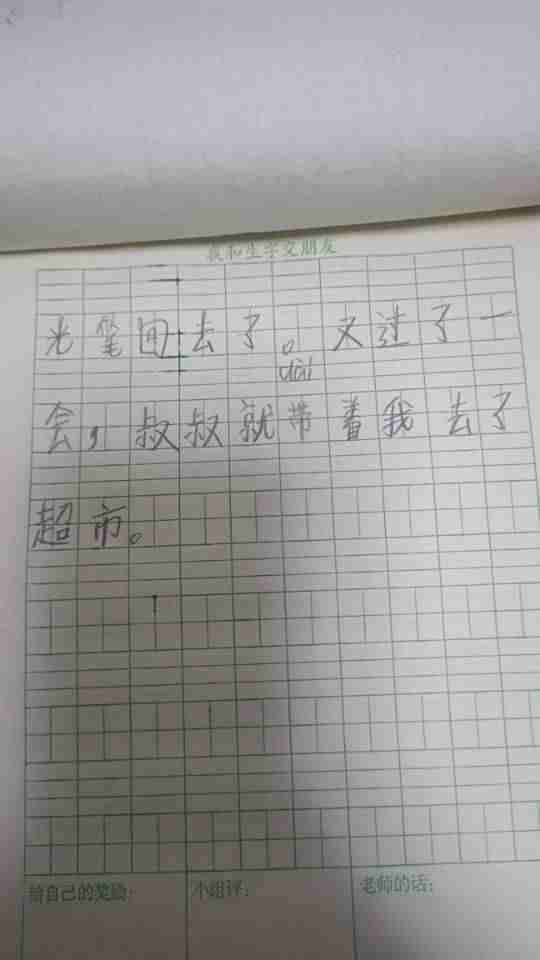 我和生字交朋友
光笔回去了。又过了一
dài
会,叔叔就带着我去了
超市。
给自己的奖励:
小组评:
老师的话: